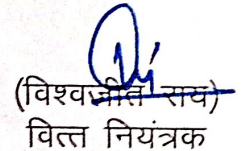 (विश्वजीत राय)
वित्त नियंत्रक